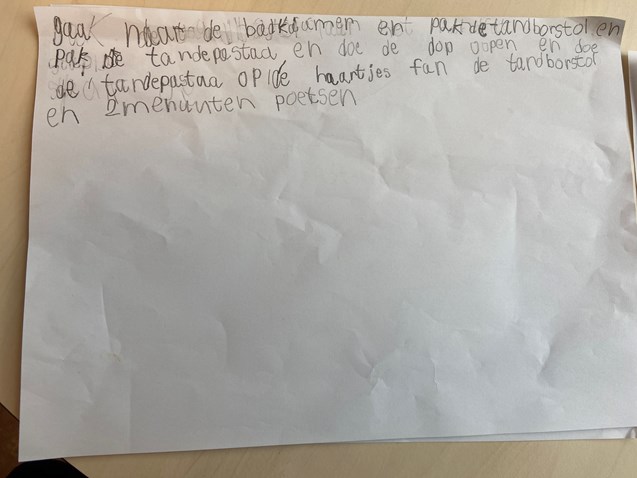 gaak naar de badkaamer en pak de tandborstol en
pak de tandepastaa en doe de dop oopen en doe
de tandepastaa op de haartjes fan de tandborstol
en 2 menuuten poetsen